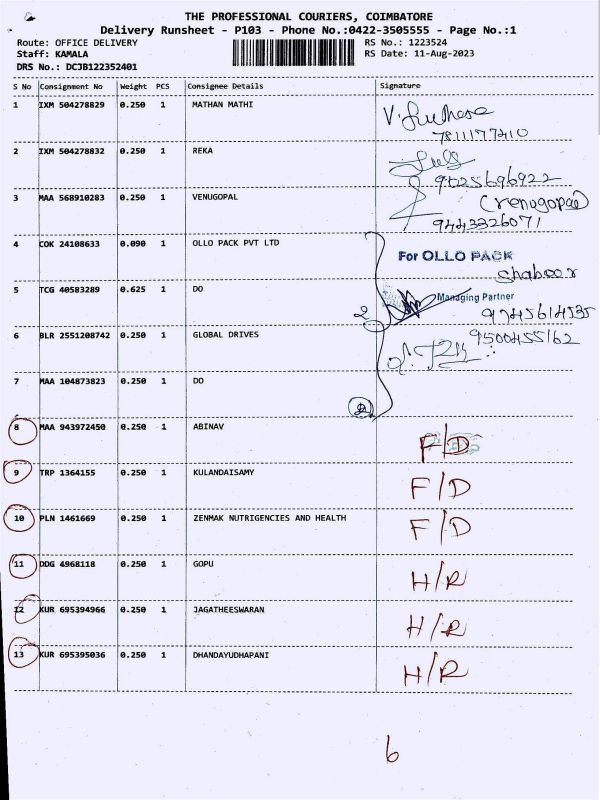 THE PROFESSIONAL COURIERS, COIMBATORE
Delivery Runsheet - P103 - Phone No.:0422-3505555 - Page No.:1
Route: OFFICE DELIVERY RS No.: 1223524
Staff: KAMALA RS Date: 11-Aug-2023
DRS No.: DCJB122352401
S No Consignment No Weight PCS Consignee Details Signature
1 IXM 504278829 0.250 1 MATHAN MATHI
7811177210
2 IXM 504278832 0.250 1 REKA
9525696922
3 MAA 568910283 0.250 1 VENUGOPAL (Venugopal)
9443326071
4 COK 24108633 0.090 1 OLLO PACK PVT LTD For OLLO PACK
Shaboor
5 TCG 40583289 0.625 1 DO Managing Partner
9745614535
6 BLR 2551208742 0.250 1 GLOBAL DRIVES 9500455162
7 MAA 104873823 0.250 1 DO
8 MAA 943972450 0.250 1 ABINAV F/D
9 TRP 1364155 0.250 1 KULANDAISAMY F/D
10 PLN 1461669 0.250 1 ZENMAK NUTRIGENCIES AND HEALTH F/D
11 DDG 4968118 0.250 1 GOPU H/R
12 KUR 695394966 0.250 1 JAGATHEESWARAN H/R
13 KUR 695395036 0.250 1 DHANDAYUDHAPANI H/R
6